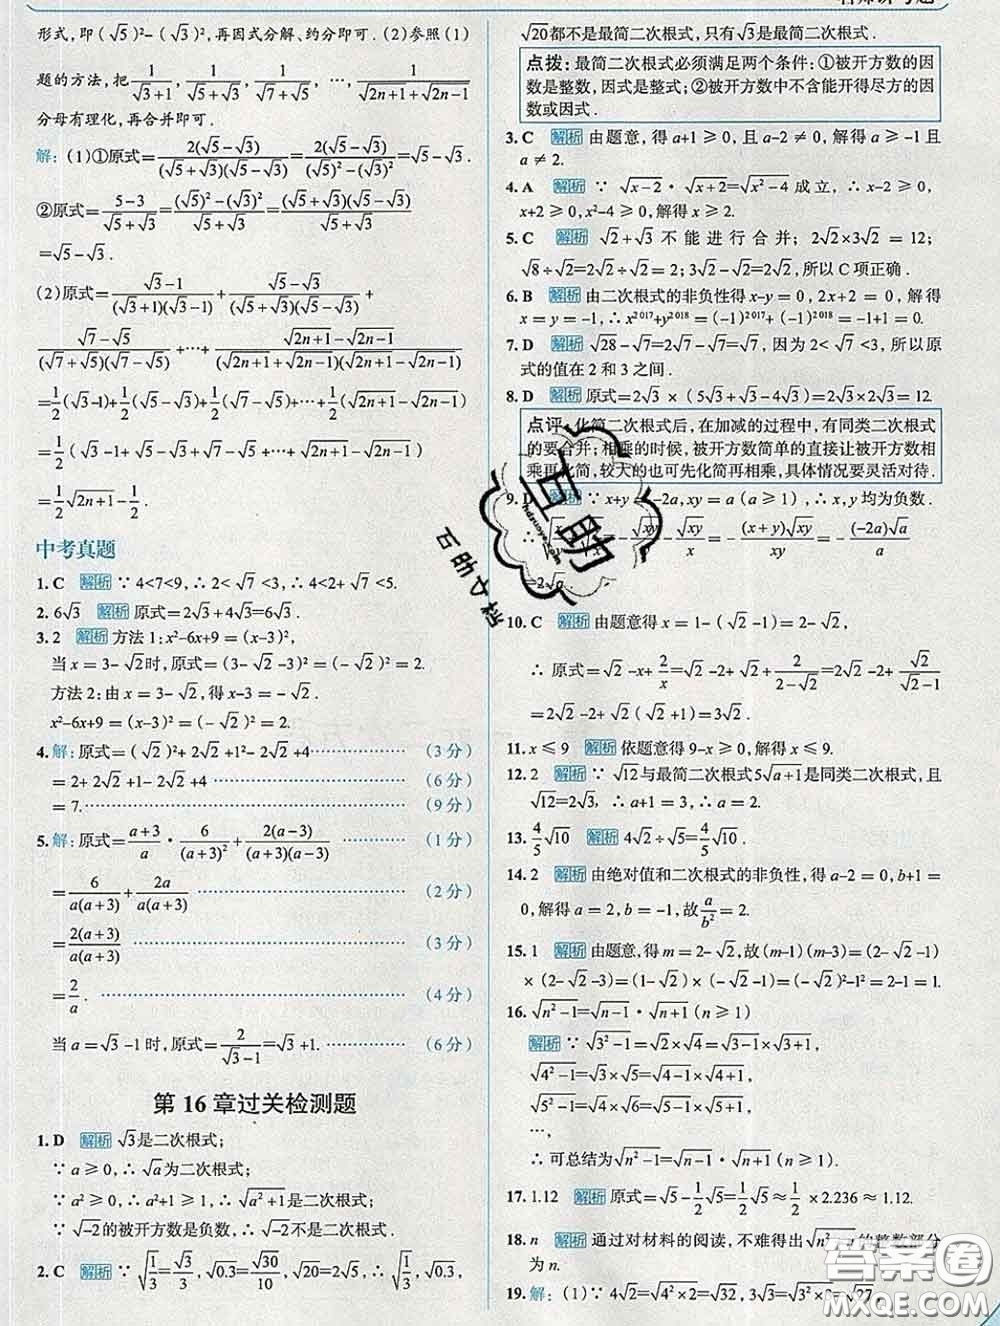 形式,即(√5)²-(√3)²,再因式分解、约分即可.(2)参照(1)
题的方法,把1/(√3+1),1/(√5+√3),1/(√7+√5),…,1/(√(2n+1)+√(2n-1))
分母有理化,再合并即可.
解:(1)①原式=2(√5-√3)/((√5+√3)(√5-√3))=2(√5-√3)/((√5)²-(√3)²)=√5-√3.
②原式=(5-3)/(√5+√3)=((√5)²-(√3)²)/(√5+√3)=(√5+√3)(√5-√3)/(√5+√3)
=√5-√3.
(2)原式=(√3-1)/((√3+1)(√3-1))+(√5-√3)/((√5+√3)(√5-√3))+
(√7-√5)/((√7+√5)(√7-√5))+…+(√(2n+1)-√(2n-1))/((√(2n+1)+√(2n-1))(√(2n+1)-√(2n-1)))
=1/2(√3-1)+1/2(√5-√3)+1/2(√7-√5)+…+1/2(√(2n+1)-√(2n-1))
=1/2(√3-1+√5-√3+√7-√5+…+√(2n+1)-√(2n-1))
=1/2√(2n+1)-1/2.
中考真题
1.C 解析 ∵4<7<9,∴2<√7<3,∴4<2+√7<5.
2.6√3 解析 原式=2√3+4√3=6√3.
3.2 解析 方法1:x²-6x+9=(x-3)²,
当x=3-√2时,原式=(3-√2-3)²=(-√2)²=2.
方法2:由x=3-√2,得x-3=-√2.
x²-6x+9=(x-3)²=(-√2)²=2.
4.解:原式=(√2)²+2√2+1²-2√2+4……(3分)
=2+2√2+1-2√2+4……(6分)
=7.……(9分)
5.解:原式=(a+3)/a·6/(a+3)²+2(a-3)/((a+3)(a-3))……(1分)
=6/(a(a+3))+2a/(a(a+3))……(2分)
=2(a+3)/(a(a+3))……(3分)
=2/a.……(4分)
当a=√3-1时,原式=2/(√3-1)=√3+1.……(6分)
第16章过关检测题
1.D 解析 √3是二次根式;
∵a≥0,∴√a为二次根式;
∵a²≥0,∴a²+1≥1,∴√(a²+1)是二次根式;
∵√-2的被开方数是负数,∴√-2不是二次根式.
2.C 解析 ∵√(1/3)=√3/3,√0.3=√30/10,√20=2√5,∴√(1/3),√0.3,
√20都不是最简二次根式,只有√3是最简二次根式.
点拨:最简二次根式必须满足两个条件:①被开方数的因
数是整数,因式是整式;②被开方数中不含能开得尽方的因
数或因式.
3.C 解析 由题意,得a+1≥0,且a-2≠0,解得a≥-1且
a≠2.
4.A 解析 ∵√(x-2)·√(x+2)=√(x²-4)成立,∴x-2≥0,
x+2≥0,x²-4≥0,解得x≥2.
5.C 解析 √2+√3不能进行合并;2√2×3√2=12;
√8÷√2=2√2÷√2=2;3√2-√2=2√2,所以C项正确.
6.B 解析 由二次根式的非负性得x-y=0,2x+2=0,解得
x=y=-1,∴x²⁰¹⁷+y²⁰¹⁸=(-1)²⁰¹⁷+(-1)²⁰¹⁸=-1+1=0.
7.D 解析 √28-√7=2√7-√7=√7,因为2<√7<3,所以原
式的值在2和3之间.
8.D 解析 原式=2√3×(5√3+√3-4√3)=2√3×2√3=12.
点评:化简二次根式后,在加减的过程中,有同类二次根式
的要合并;相乘的时候,被开方数简单的直接让被开方数相
乘再化简,较大的也可先化简再相乘,具体情况要灵活对待.
9.D 解析 ∵x+y=-2a,xy=a(a≥1),∴x,y均为负数.
-√xy/x-√xy/y=-(x+y)√xy/xy=-(-2a)√a/a
=2√a.
10.C 解析 由题意得x=1-(√2-1)=2-√2,
∴原式=√2-x+2/x=√2-2+√2+2/(2-√2)=2√2-2+√2/(√2-1)
=2√2-2+√2(√2+1)=3√2.
11.x≤9 解析 依题意得9-x≥0,解得x≤9.
12.2 解析 ∵√12与最简二次根式5√(a+1)是同类二次根式,且
√12=2√3,∴a+1=3,∴a=2.
13.4/5√10 解析 4√2÷√5=4/5√10.
14.2 解析 由绝对值和二次根式的非负性,得a-2=0,b+1
=0,解得a=2,b=-1,故a/b²=2.
15.1 解析 由题意,得m=2-√2,故(m-1)(m-3)=(2-√2-1)
×(2-√2-3)=(1-√2)×(-√2-1)=(-√2)²-1²=2-1=1.
16.√(n²-1)=√(n-1)·√(n+1)(n≥1)
解析 ∵√(3²-1)=√2×√4=√(3-1)×√(3+1),
√(4²-1)=√3×√5=√(4-1)×√(4+1),
√(5²-1)=√4×√6=√(5-1)×√(5+1),
…,
∴可总结为√(n²-1)=√(n-1)×√(n+1)(n≥1).
17.1.12 解析 原式=√5-1/2√5=1/2√5≈1/2×2.236≈1.12.
18.n 解析 通过对材料的阅读,不难得出√(n²-n)的整数部分
为n.
19.解:(1)∵4√2=√(4²×2)=√32,3√3=√(3²×3)=√27,
互助
百助文
答案圈
MXQE.COM